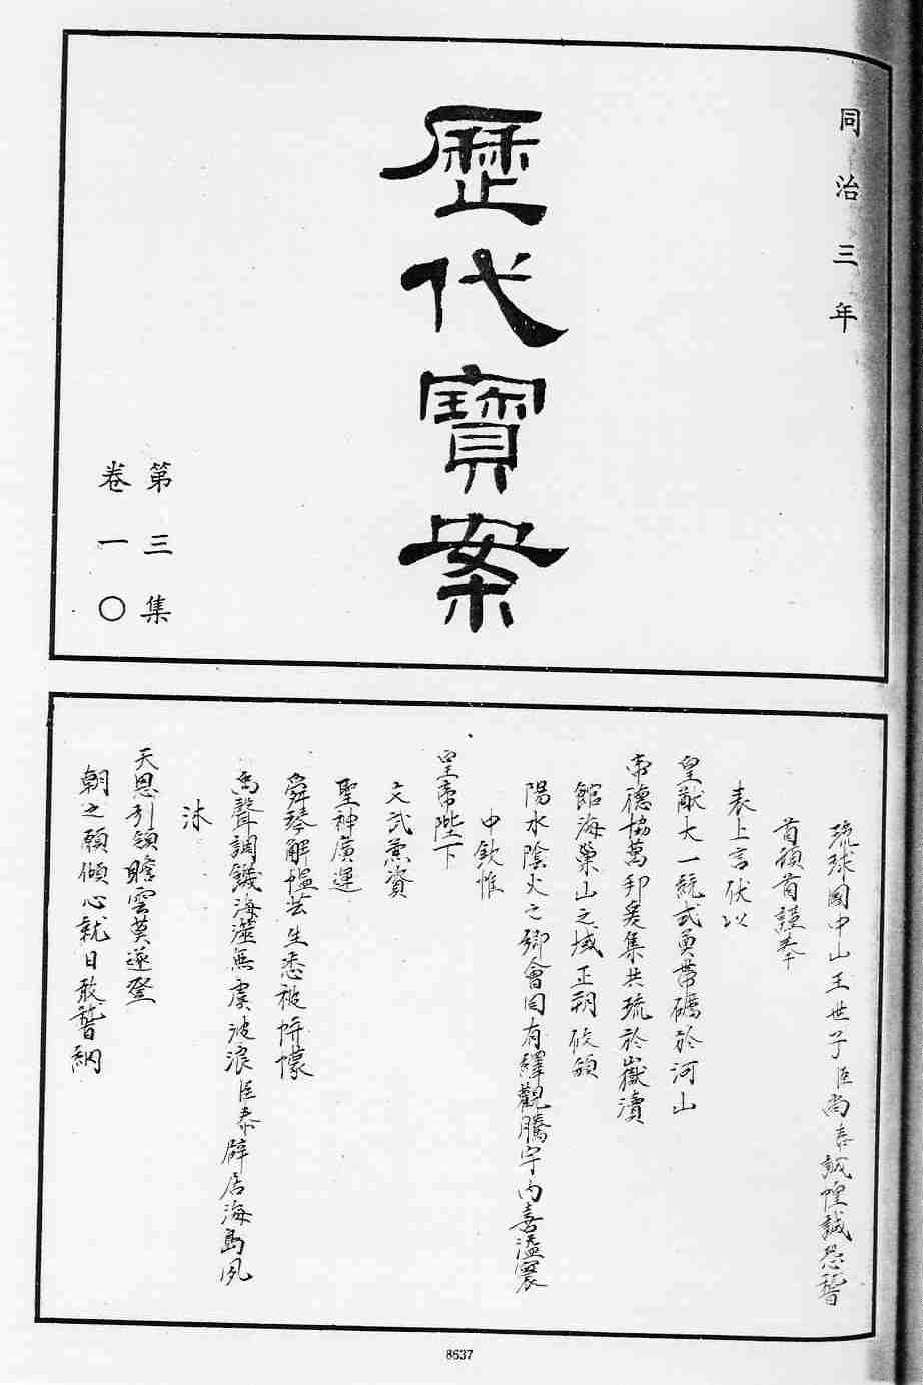 同治三年
歷代寶案
第三集
卷一〇
琉球國中山王世子臣尚泰誠惶誠恐稽
首頓首謹奉
表上言伏以
皇猷大一統式員帶礪於河山
帝德協萬邦爰集共琉於嶽瀆
館海巢山之域正朔攸頒
陽水陰火之鄉會同有繹觀騰宇內喜溢寰
中欽惟
皇帝陛下
文武兼資
聖神廣運
舜琴解慍芸生悉被帡幪
禹聲調鐖海澨無虞波浪臣泰辟居海島夙
沐
天恩引領瞻雲莫遂登
朝之願傾心就日敢誓納
8637